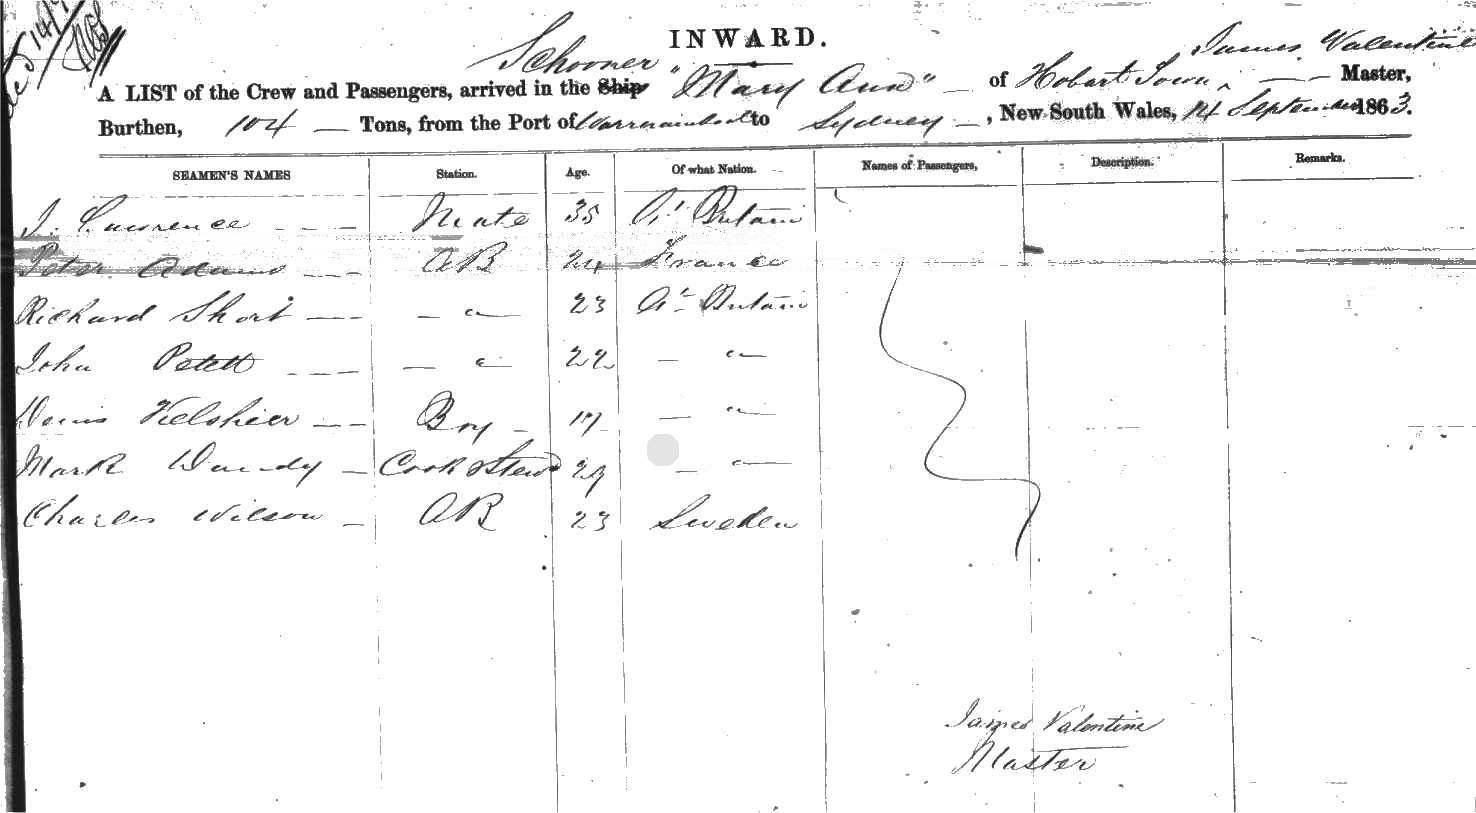 INWARD.
Schooner James Valentine
A LIST of the Crew and Passengers, arrived in the Ship "Mary Ann" of Hobart Town, Master,
Burthen, 104 Tons, from the Port of Warrnambool to Sydney, New South Wales, 14 September 1863.
SEAMEN'S NAMES Station. Age. Of what Nation. Names of Passengers, Description. Remarks.
J. Lawrence Mate 35 Gt Britain
Peter Adams AB 24 France
Richard Short " 23 Gt Britain
John " 22 "
Boy 17 "
Mark Cook & Stewd 29 "
Charles Wilson AB 23 Sweden
James Valentine
Master